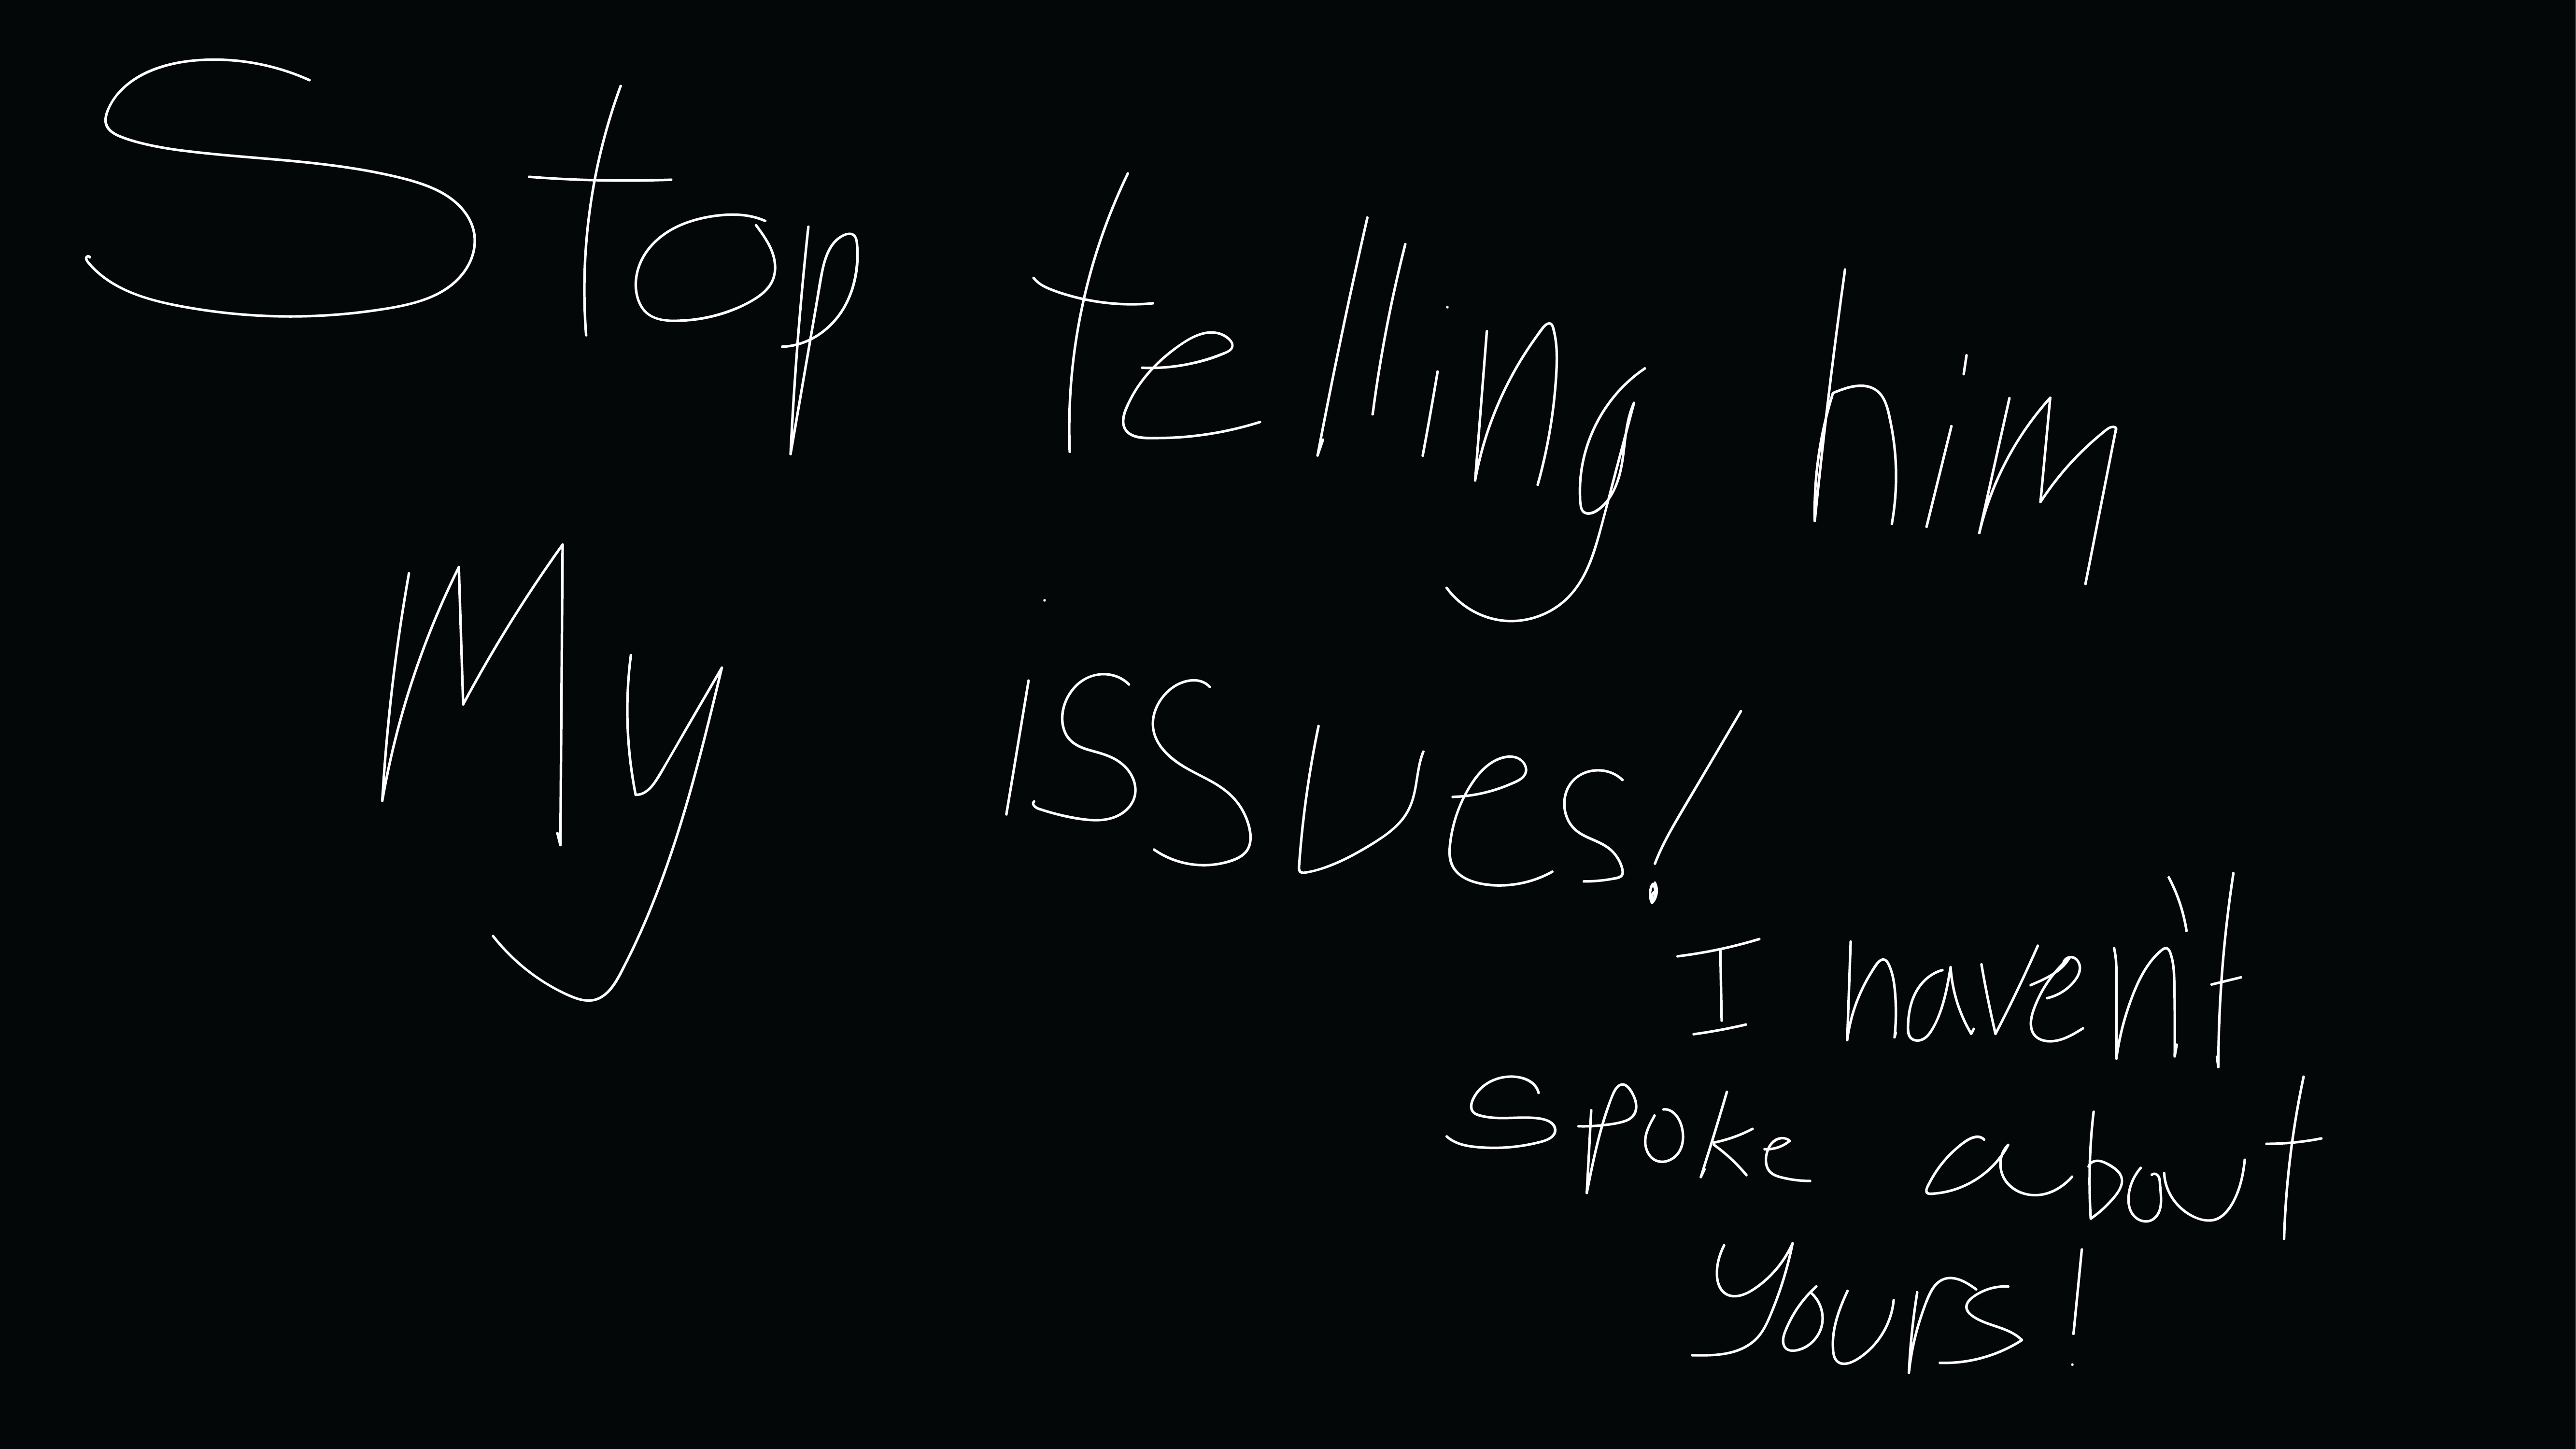 Stop telling him
My issues!
I haven't
spoke about
yours!